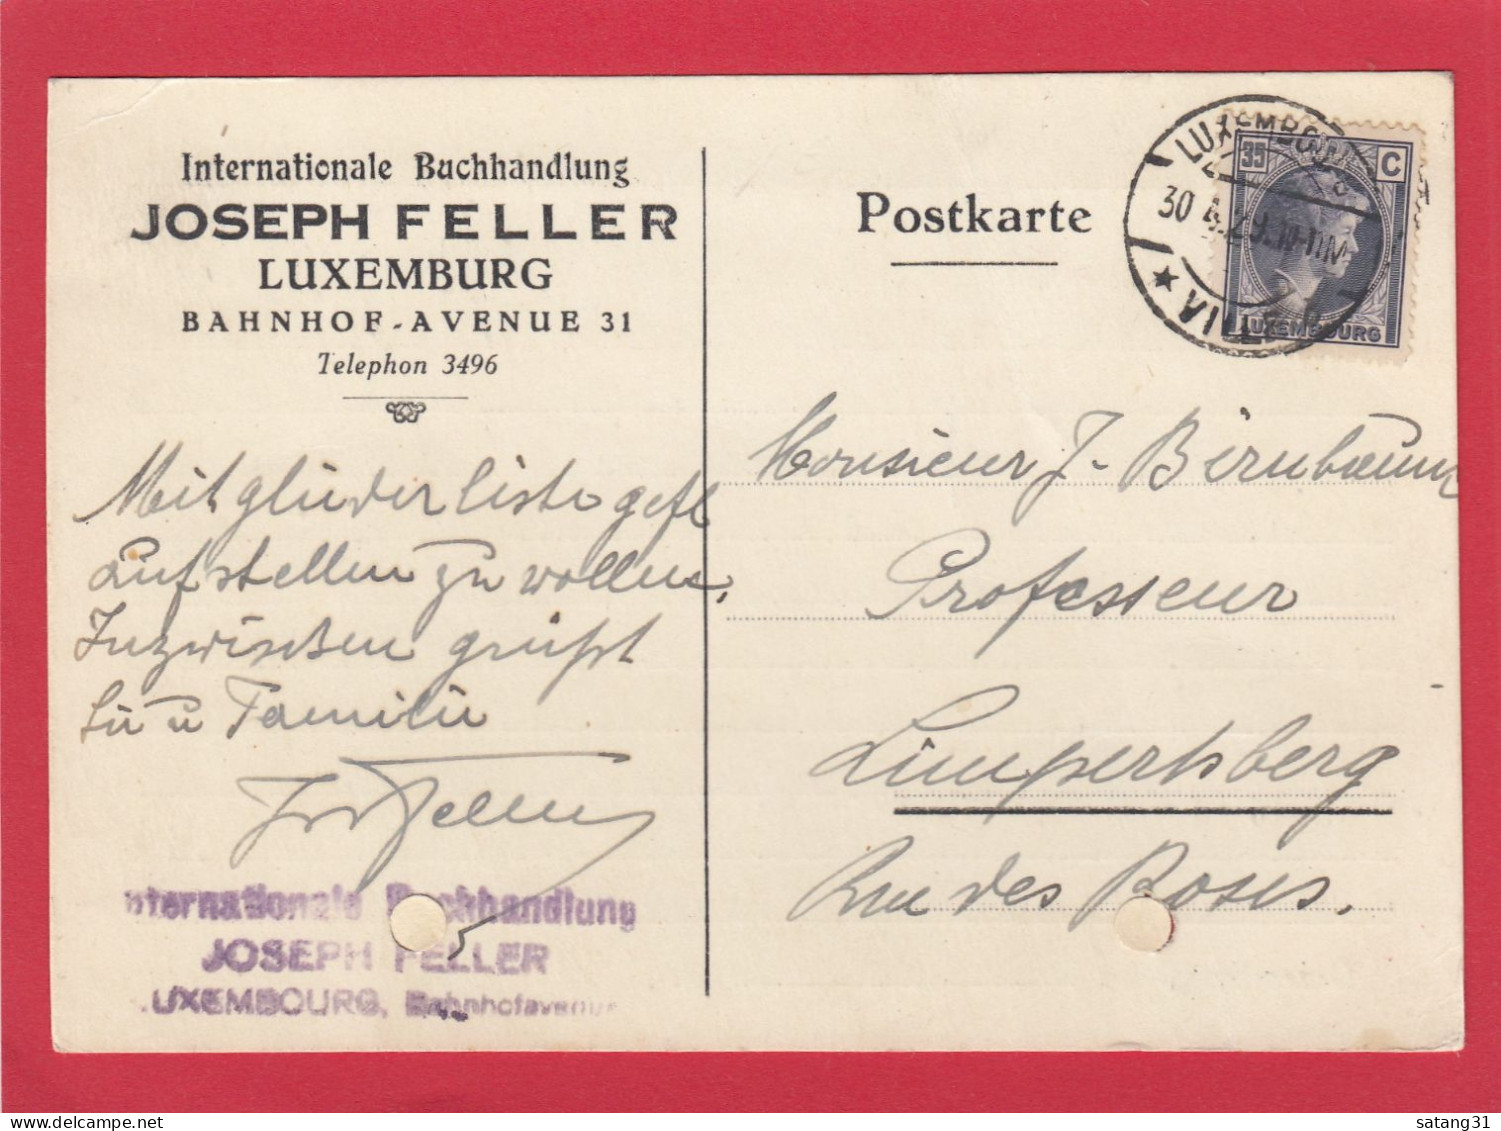 Internationale Buchhandlung
JOSEPH FELLER
LUXEMBURG
BAHNHOF-AVENUE 31
Telephon 3496
Mitgliederliste gefl
aufstellen zu wollen,
Inzwischen grüßt
Sie u Familie
Jos Feller
Internationale Buchhandlung
JOSEPH FELLER
LUXEMBOURG, Bahnhofavenue
Postkarte
LUXEMBOURG
30.4.29.10-11M
VILLE
35 C
LUXEMBOURG
Monsieur J. Birnbaum
Professeur
Limpertsberg
Rue des Roses.
satang31